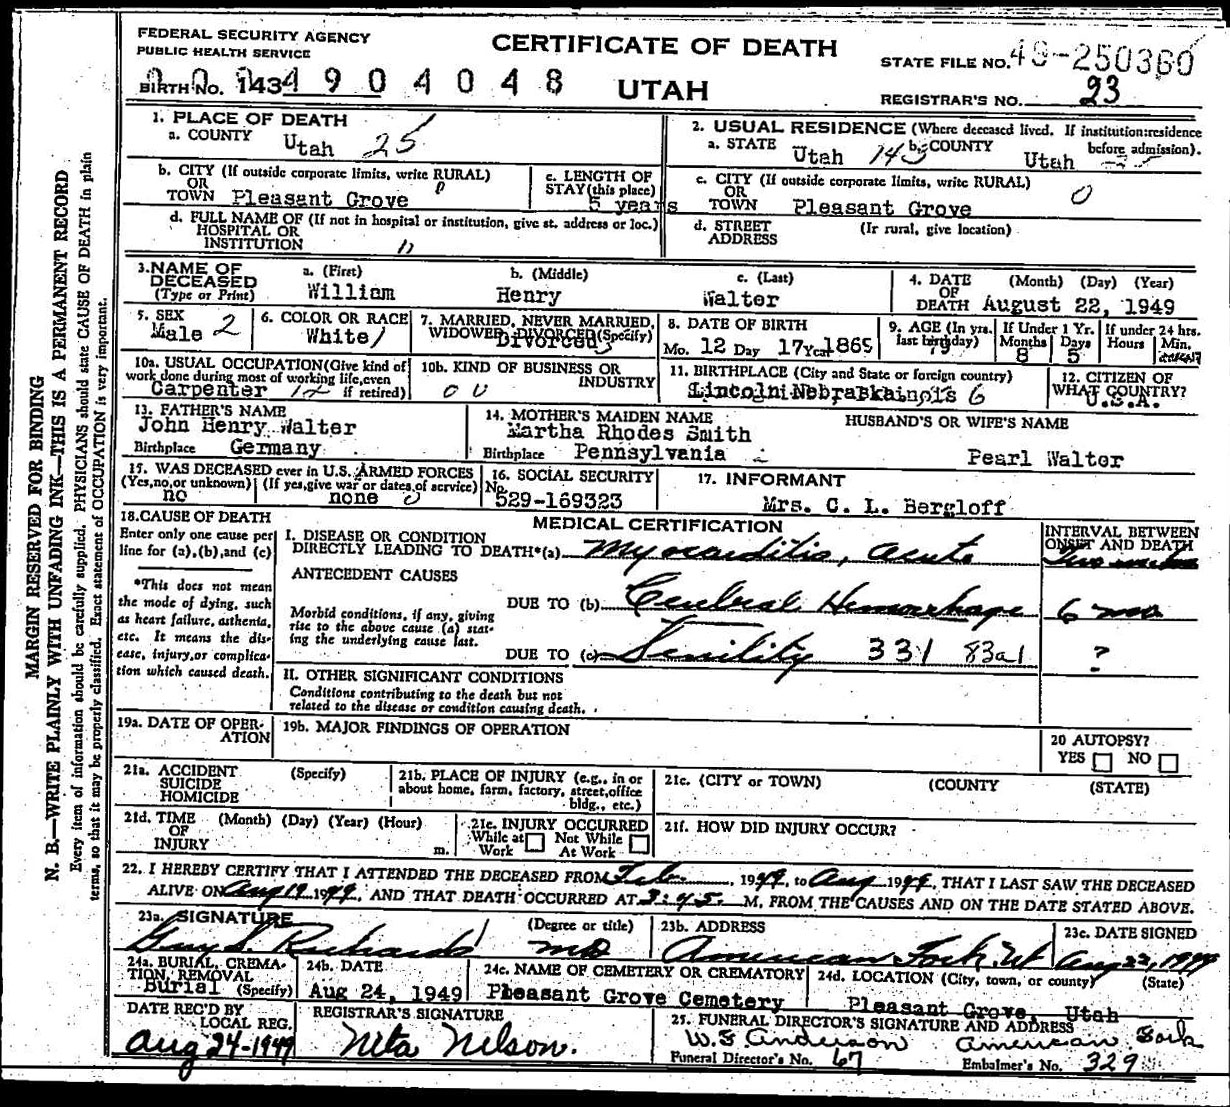 FEDERAL SECURITY AGENCY
PUBLIC HEALTH SERVICE
CERTIFICATE OF DEATH
STATE FILE NO. 49-250360
BIRTH NO. 143 4 9 0 4 0 4 8
UTAH
REGISTRAR'S NO. 23
MARGIN RESERVED FOR BINDING
N. B.—WRITE PLAINLY WITH UNFADING INK—THIS IS A PERMANENT RECORD
Every item of information should be carefully supplied. PHYSICIANS should state CAUSE OF DEATH in plain
terms, so that it may be properly classified. Exact statement of OCCUPATION is very important.
1. PLACE OF DEATH
a. COUNTY Utah 25
2. USUAL RESIDENCE (Where deceased lived. If institution:residence
before admission).
a. STATE Utah 143 b. COUNTY Utah
b. CITY (If outside corporate limits, write RURAL)
OR
TOWN Pleasant Grove 0
c. LENGTH OF
STAY (this place)
5 years
c. CITY (If outside corporate limits, write RURAL)
OR
TOWN Pleasant Grove 0
d. FULL NAME OF (If not in hospital or institution, give st. address or loc.)
HOSPITAL OR
INSTITUTION
d. STREET
ADDRESS
(If rural, give location)
3. NAME OF
DECEASED
(Type or Print)
a. (First)
William
b. (Middle)
Henry
c. (Last)
Walter
4. DATE
OF
DEATH
(Month) (Day) (Year)
August 22, 1949
5. SEX
Male 2
6. COLOR OR RACE
White
7. MARRIED, NEVER MARRIED,
WIDOWED, DIVORCED (Specify)
Divorced
8. DATE OF BIRTH
Mo. 12 Day 17 Year 1869
9. AGE (In yrs.
last birthday)
79
If Under 1 Yr.
Months Days
8 5
If under 24 hrs.
Hours Min.
10a. USUAL OCCUPATION (Give kind of
work done during most of working life, even
if retired)
Carpenter
10b. KIND OF BUSINESS OR
INDUSTRY
0 0
11. BIRTHPLACE (City and State or foreign country)
Lincoln Nebraska 6
12. CITIZEN OF
WHAT COUNTRY?
U.S.A.
13. FATHER'S NAME
John Henry Walter
Birthplace Germany
14. MOTHER'S MAIDEN NAME
Martha Rhodes Smith
Birthplace Pennsylvania
HUSBAND'S OR WIFE'S NAME
Pearl Walter
15. WAS DECEASED ever in U.S. ARMED FORCES
(Yes, no, or unknown) (If yes, give war or dates of service)
no none 0
16. SOCIAL SECURITY
No.
529-169323
17. INFORMANT
Mrs. C. L. Bergloff
18. CAUSE OF DEATH
Enter only one cause per
line for (a), (b), and (c)
*This does not mean
the mode of dying, such
as heart failure, asthenia,
etc. It means the dis-
ease, injury, or complica-
tion which caused death.
MEDICAL CERTIFICATION
INTERVAL BETWEEN
ONSET AND DEATH
I. DISEASE OR CONDITION
DIRECTLY LEADING TO DEATH*(a) Myocarditis, acute
ANTECEDENT CAUSES
Morbid conditions, if any, giving
rise to the above cause (a) stat-
ing the underlying cause last.
DUE TO (b) Cerebral Hemorrhage 6 mo
DUE TO (c) Senility 331 83a1 ?
II. OTHER SIGNIFICANT CONDITIONS
Conditions contributing to the death but not
related to the disease or condition causing death.
19a. DATE OF OPER-
ATION
19b. MAJOR FINDINGS OF OPERATION
20 AUTOPSY?
YES NO
21a. ACCIDENT
SUICIDE
HOMICIDE
(Specify)
21b. PLACE OF INJURY (e.g., in or
about home, farm, factory, street, office
bldg., etc.)
21c. (CITY or TOWN) (COUNTY) (STATE)
21d. TIME (Month) (Day) (Year) (Hour)
OF
INJURY m.
21e. INJURY OCCURRED
While at Not While
Work At Work
21f. HOW DID INJURY OCCUR?
22. I HEREBY CERTIFY THAT I ATTENDED THE DECEASED FROM Feb. , 1949, to Aug 1949, THAT I LAST SAW THE DECEASED
ALIVE ON Aug 19 1949, AND THAT DEATH OCCURRED AT 3:45 M, FROM THE CAUSES AND ON THE DATE STATED ABOVE.
23a. SIGNATURE (Degree or title)
Guy S. Richards MD
23b. ADDRESS
American Fork, Ut
23c. DATE SIGNED
Aug 23, 1949
24a. BURIAL, CREMA-
TION, REMOVAL
Burial (Specify)
24b. DATE
Aug 24, 1949
24c. NAME OF CEMETERY OR CREMATORY
Pleasant Grove Cemetery
24d. LOCATION (City, town, or county) (State)
Pleasant Grove, Utah
DATE REC'D BY
LOCAL REG.
Aug 24-1949
REGISTRAR'S SIGNATURE
Neta Nelson.
25. FUNERAL DIRECTOR'S SIGNATURE AND ADDRESS
W. E. Anderson American Fork
Funeral Director's No. 67
Embalmer's No. 329